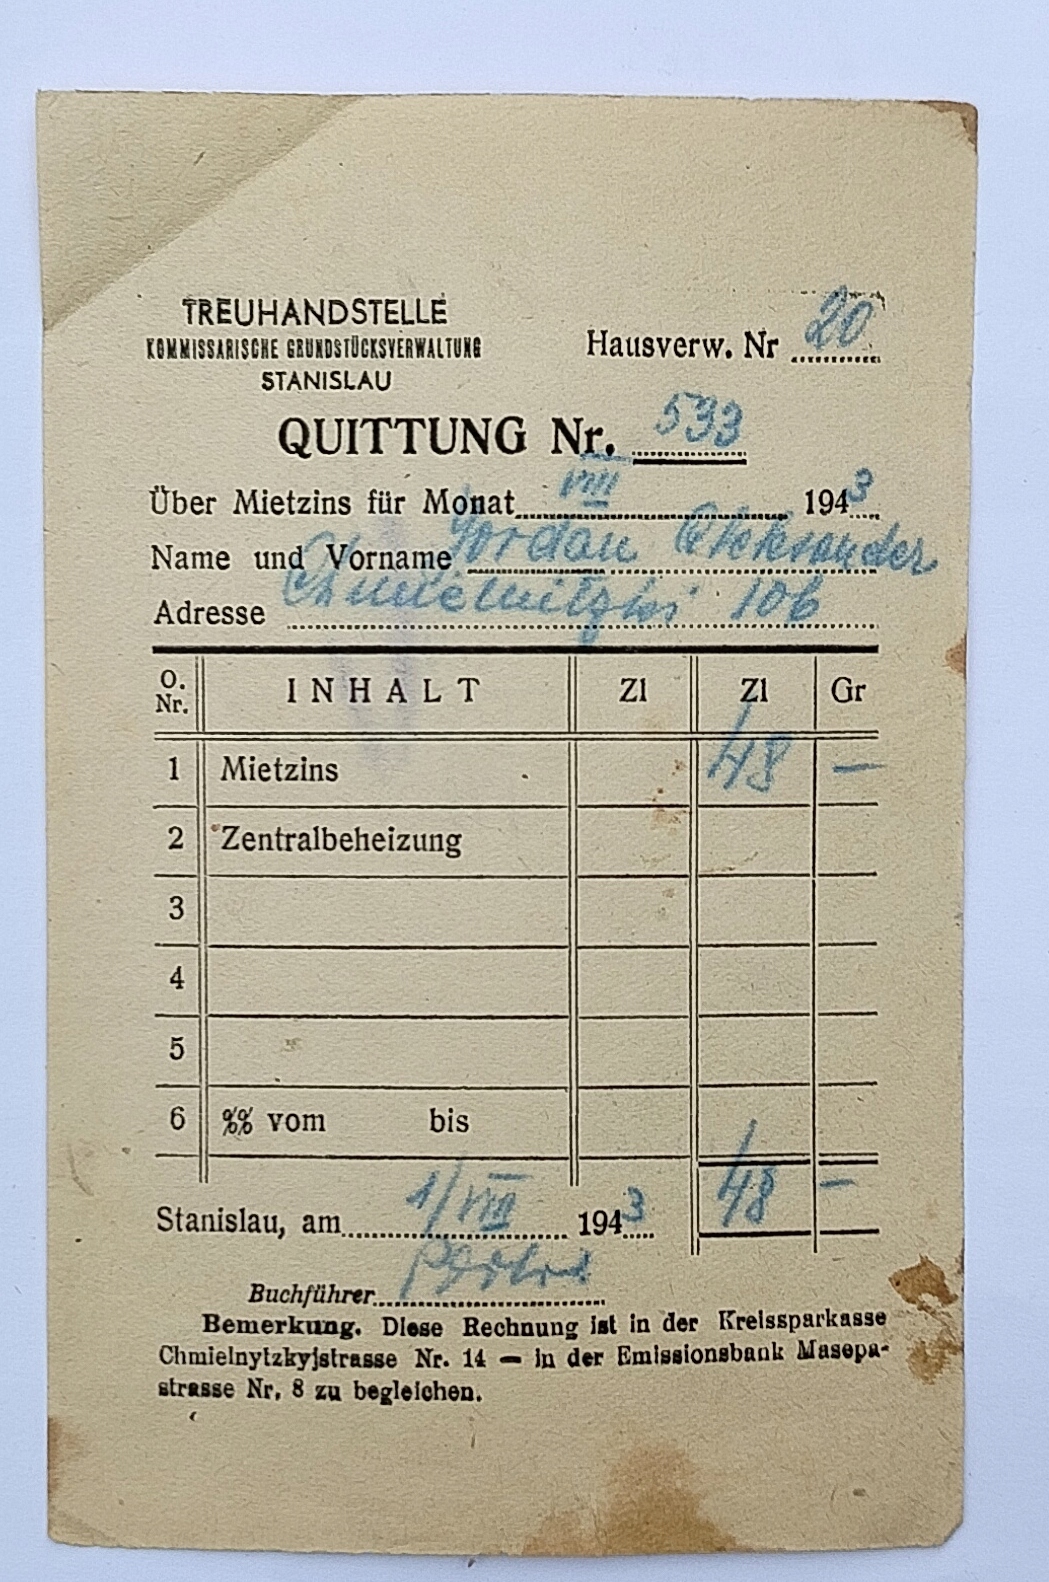 TREUHANDSTELLE
KOMMISSARISCHE GRUNDSTÜCKSVERWALTUNG
STANISLAU
Hausverw. Nr 20
QUITTUNG Nr. 533
Über Mietzins für Monat VIII 1943
Name und Vorname Jordan Aleksander
Adresse 10b
O. Nr. INHALT Zl Zl Gr
1 Mietzins 48 —
2 Zentralbeheizung
3
4
5
6 %% vom bis
48 —
Stanislau, am 1/VIII 1943
Buchführer
Bemerkung. Diese Rechnung ist in der Kreissparkasse
Chmielnytzkyjstrasse Nr. 14 — in der Emissionsbank Masepa-
strasse Nr. 8 zu begleichen.